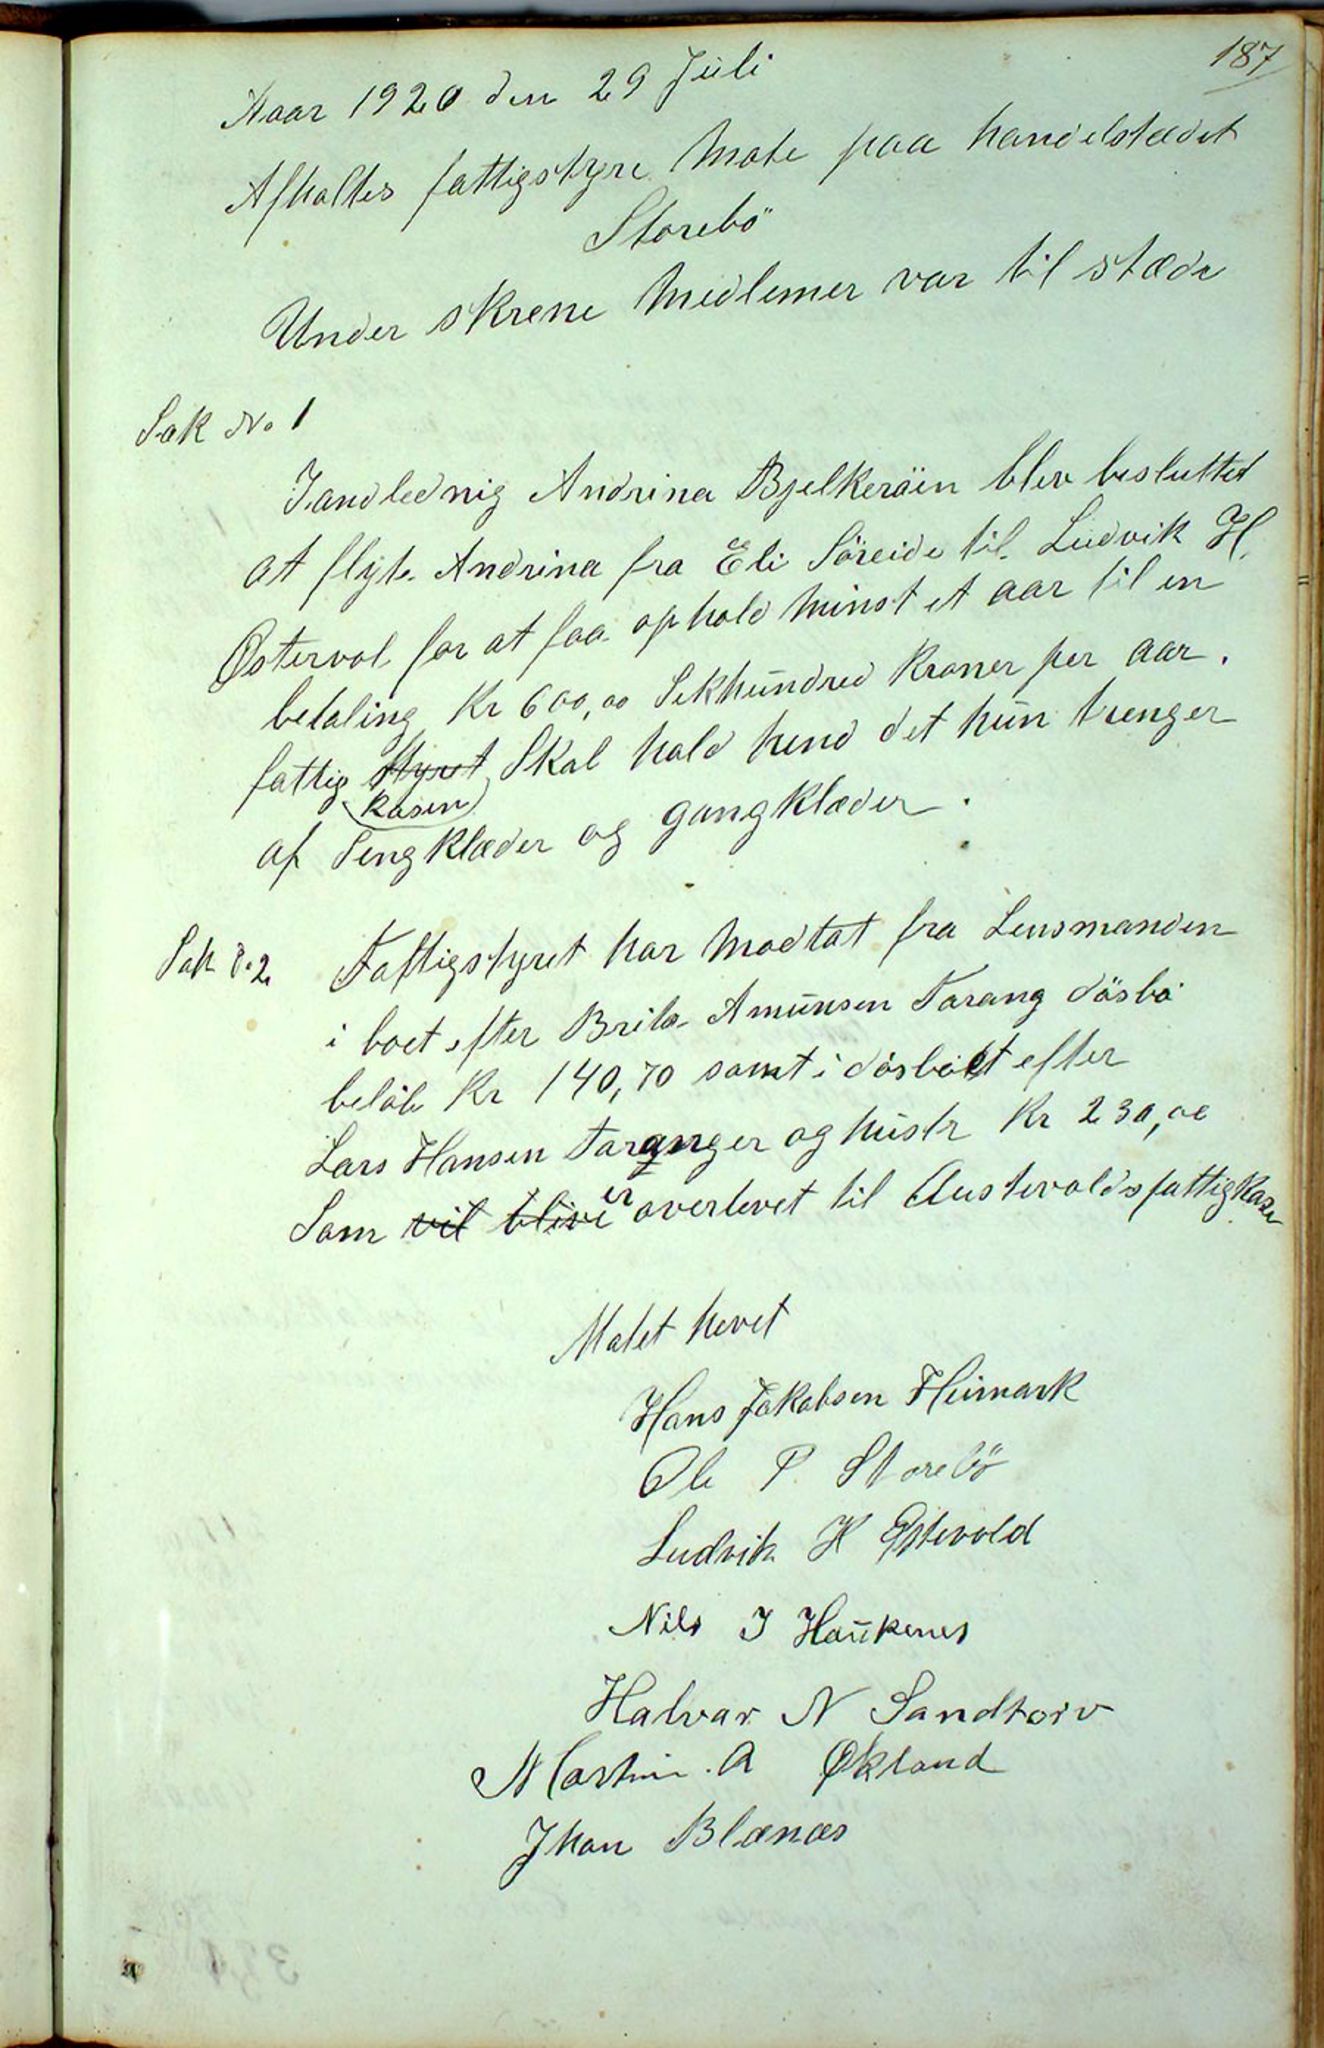 187
Aaar 1920 den 29 Juli
Afholtes fattigstyre Møte paa handelstædet
Storebö
Under skrene Medlemer var til stæde
Sak No 1
I andlednig Andrina Bjelkeröien blev besluttet
at flyte Andrina fra Eli Söreide til Ludvik H.
Østervol for at faa ophold minst et aar til en
betaling Kr 600,00 Sekhundred Kroner per aar.
fattig Styret Skal hold hend det hun trenger
Kasen
af Sengklæder og gangklæder.
Sak No 2 Fattigstyret har Modtat fra Lensmanden
i boet efter Brita Amunsen Torang dösbo
belöb Kr 140,70 samt i dösboet efter
Lars Hansen Taranger og hustr Kr 230,00
Som vil blive er overlevet til Austevoldsfattigkase
Møtet hevet
Hans Jakobsen Heimark
Ole P. Storebö
Ludvik H Østevold
Nils J Haukenes
Halvar N Sandtorv
Martin. A Økland
Jhan Blænæs